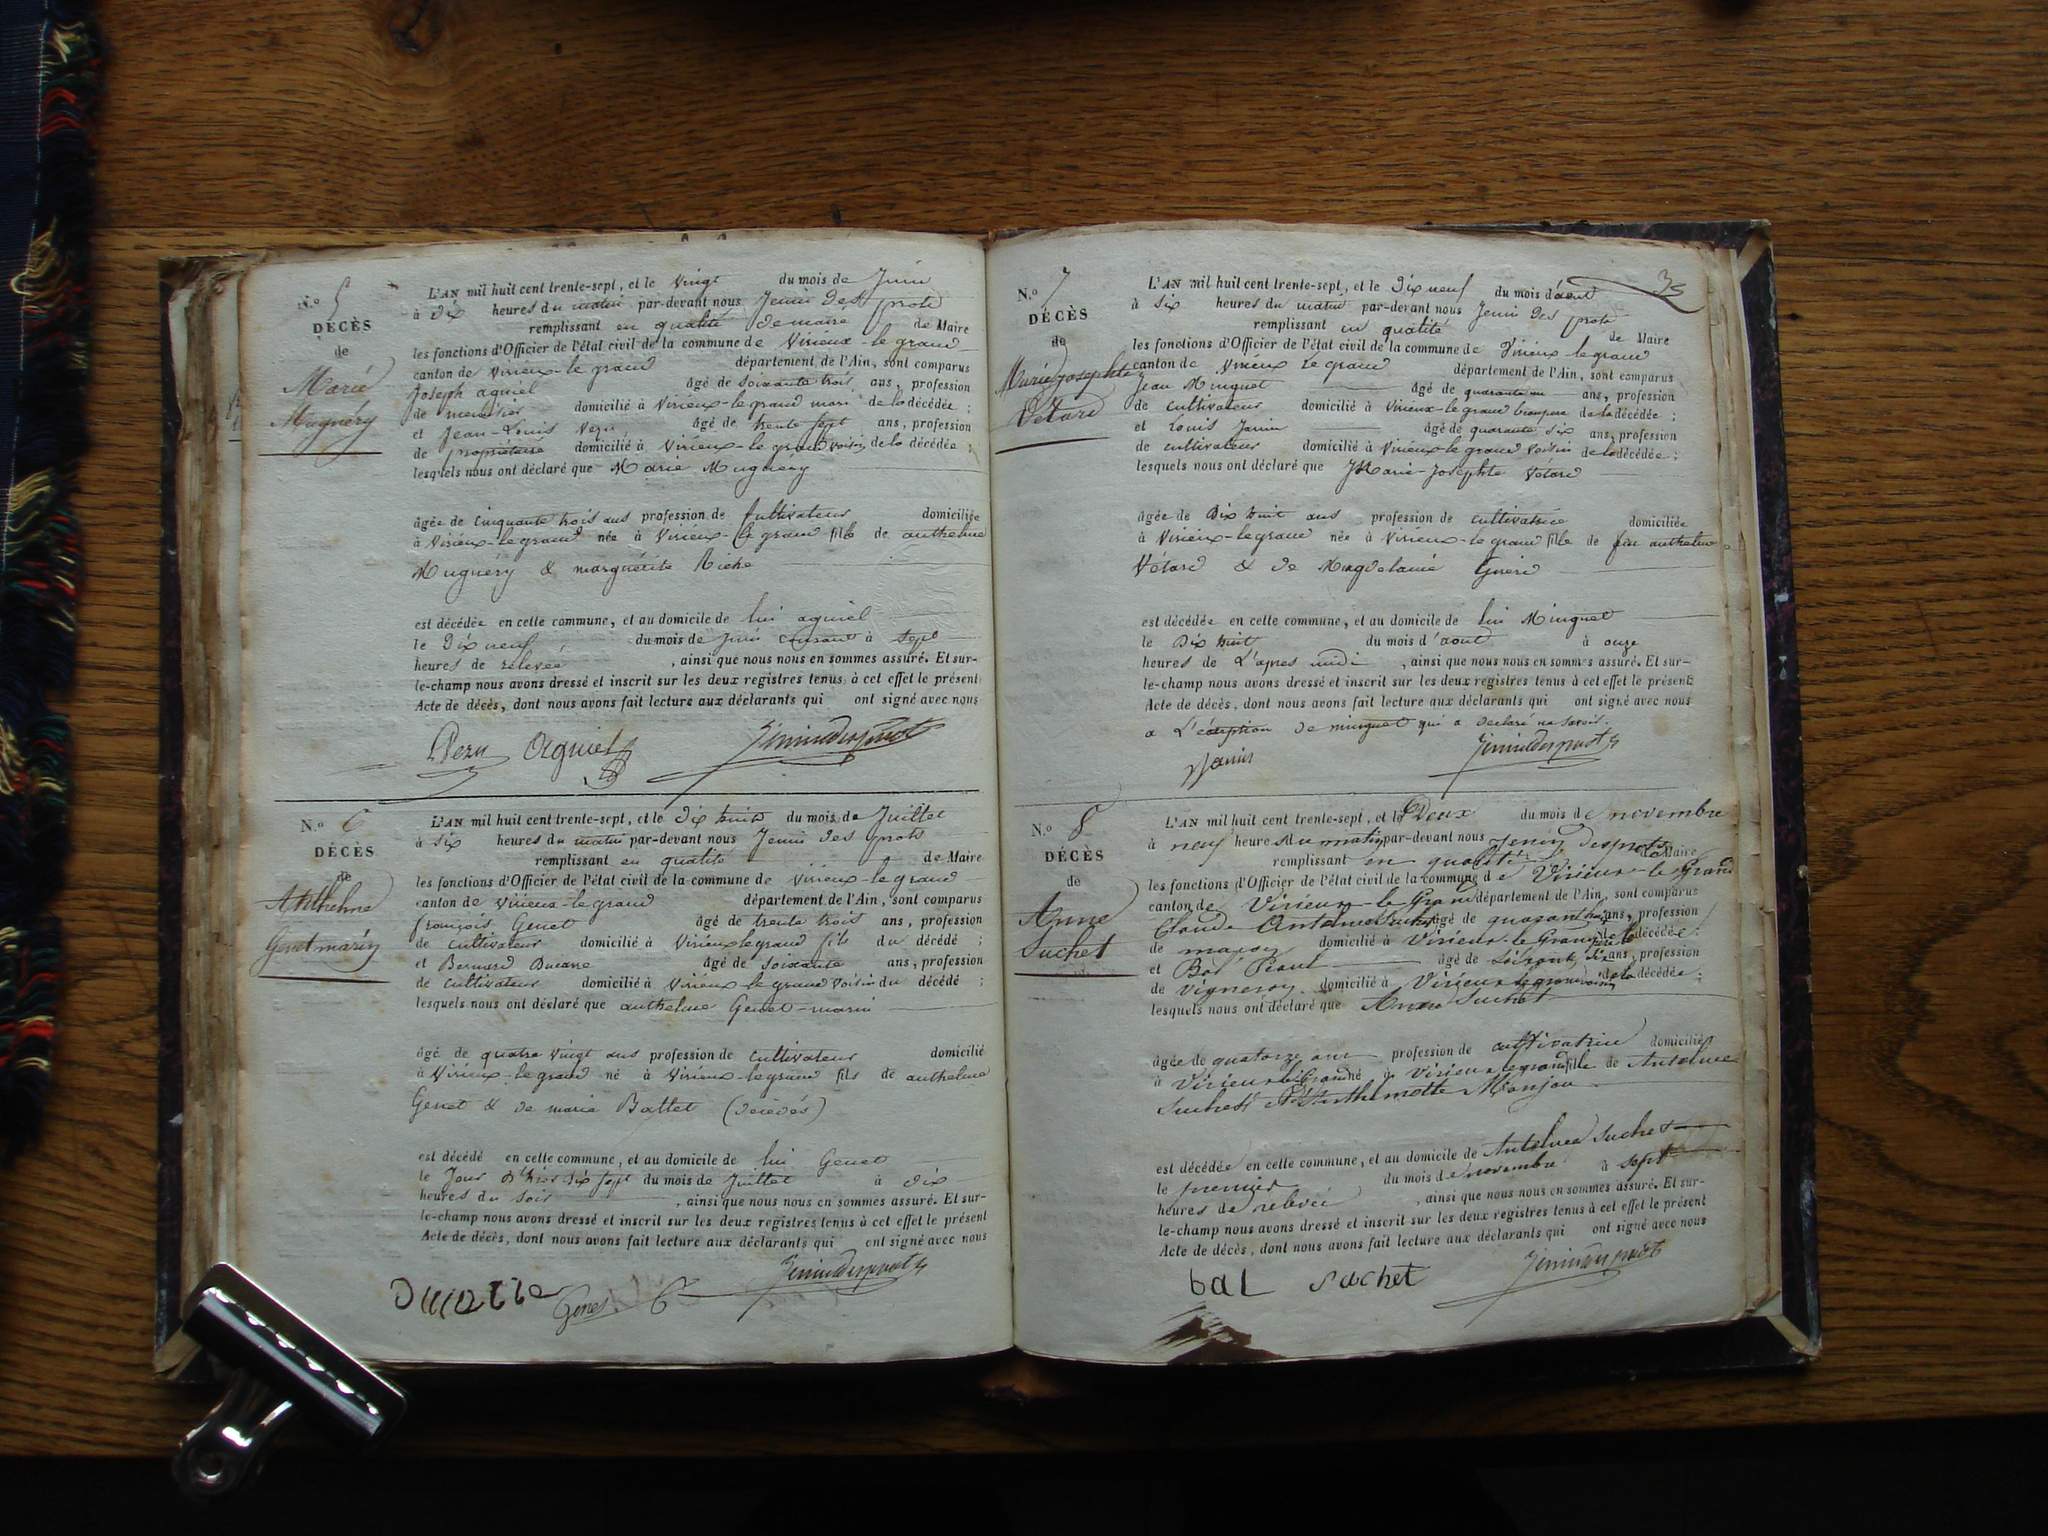 N.o 5
DÉCÈS
de
Marie
Mugnéry
L'AN mil huit cent trente-sept, et le vingt du mois de Juin
à dix heures du matin par-devant nous Jenin des prots
remplissant en qualité de maire de Maire
les fonctions d'Officier de l'état civil de la commune de Virieux-le grand
canton de Virieux-le grand département de l'Ain, sont comparus
Joseph aguiel âgé de soixante trois ans, profession
de menuisier domicilié à Virieux-le grand mari de la décédée ;
et Jean-Louis Vezu âgé de trente sept ans, profession
de propriétaire domicilié à Virieux-le grand voisin de la décédée ;
lesquels nous ont déclaré que Marie Mugnery
âgée de cinquante trois ans profession de cultivateur domiciliée
à Virieux-le grand née à Virieux-le grand fille de anthelme
Mugnéry & marguerite Riche
est décédée en cette commune, et au domicile de lui aguiel
le dix neuf du mois de Juin courant à sept
heures de relevée , ainsi que nous nous en sommes assuré. Et sur-
le-champ nous avons dressé et inscrit sur les deux registres tenus à cet effet le présent
Acte de décès, dont nous avons fait lecture aux déclarants qui ont signé avec nous
Vezu Aguiel Jenindesprost
N.o 6
DÉCÈS
de
Anthelme
Genet marin
L'AN mil huit cent trente-sept, et le dix huit du mois de Juillet
à six heures du matin par-devant nous Jenin des prots
remplissant en qualité de Maire
les fonctions d'Officier de l'état civil de la commune de Virieux-le grand
canton de Virieux-le grand département de l'Ain, sont comparus
françois Genet âgé de trente trois ans, profession
de cultivateur domicilié à Virieux le grand fils du décédé ;
et Bernard âgé de soixante ans, profession
de cultivateur domicilié à Virieux-le grand voisin du décédé ;
lesquels nous ont déclaré que anthelme Genet-marin
âgé de quatre vingt ans profession de cultivateur domicilié
à Virieux-le grand né à Virieux-le grand fils de anthelme
Genet & de marie Ballet (décédés)
est décédé en cette commune, et au domicile de lui Genet
le Jour d'hier dix sept du mois de Juillet à dix
heures du soir , ainsi que nous nous en sommes assuré. Et sur-
le-champ nous avons dressé et inscrit sur les deux registres tenus à cet effet le présent
Acte de décès, dont nous avons fait lecture aux déclarants qui ont signé avec nous
Jenindesprost
Genet
35
N.o 7
DÉCÈS
de
Marie josephte
Vétard
L'AN mil huit cent trente-sept, et le dix neuf du mois d'aout
à six heures du matin par-devant nous Jenin des prots
remplissant en qualité de Maire
les fonctions d'Officier de l'état civil de la commune de Virieux-le grand
canton de Virieux le grand département de l'Ain, sont comparus
Jean Minguet âgé de quarante un ans, profession
de cultivateur domicilié à Virieux-le grand beaupere de la décédée ;
et Louis Janin âgé de quarante six ans, profession
de cultivateur domicilié à Virieux-le grand voisin de la décédée ;
lesquels nous ont déclaré que Marie-Josephte Vétard
âgée de Dix huit ans profession de cultivatrice domiciliée
à Virieux-le grand née à Virieux-le grand fille de feu anthelme
Vétard & de Magdelaine
est décédée en cette commune, et au domicile de lui Minguet
le Dix huit du mois d'aout à onze
heures de L'apres midi , ainsi que nous nous en sommes assuré. Et sur-
le-champ nous avons dressé et inscrit sur les deux registres tenus à cet effet le présent
Acte de décès, dont nous avons fait lecture aux déclarants qui ont signé avec nous
a L'éxeption de minguet qui a declaré ne savoir.
Janin Jenindesprost
N.o 8
DÉCÈS
de
Anne
Suchet
L'AN mil huit cent trente-sept, et le Deux du mois de novembre
à neuf heures du matin par-devant nous Jenin desprots
remplissant en qualité de Maire
les fonctions d'Officier de l'état civil de la commune de Virieux-le Grand
canton de Virieux-le Grand département de l'Ain, sont comparus
Claude Antelme Suchet âgé de ans, profession
de maçon domicilié à Virieux-le Grand de la décédée ;
et âgé de ans, profession
de vigneron domicilié à Virieux le grand voisin de la décédée ;
lesquels nous ont déclaré que Anne Suchet
âgée de quatorze ans profession de cultivatrice domiciliée
à Virieux le Grand née à Virieux le grand fille de Antelme
Suchet
est décédée en cette commune, et au domicile de Antelme Suchet
le premier du mois de novembre à sept
heures de relevée , ainsi que nous nous en sommes assuré. Et sur-
le-champ nous avons dressé et inscrit sur les deux registres tenus à cet effet le présent
Acte de décès, dont nous avons fait lecture aux déclarants qui ont signé avec nous
bal suchet Jenindesprost